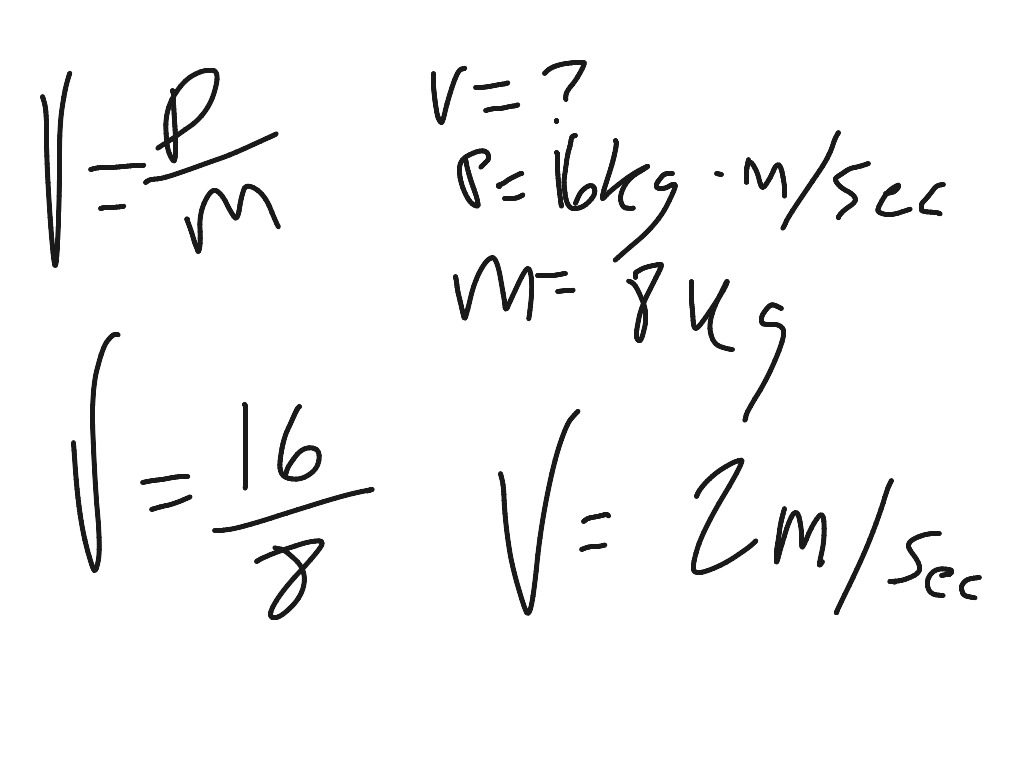 V = P/m
v = ?
P = 16kg · m/sec
m = 8kg
V = 16/8
V = 2m/sec